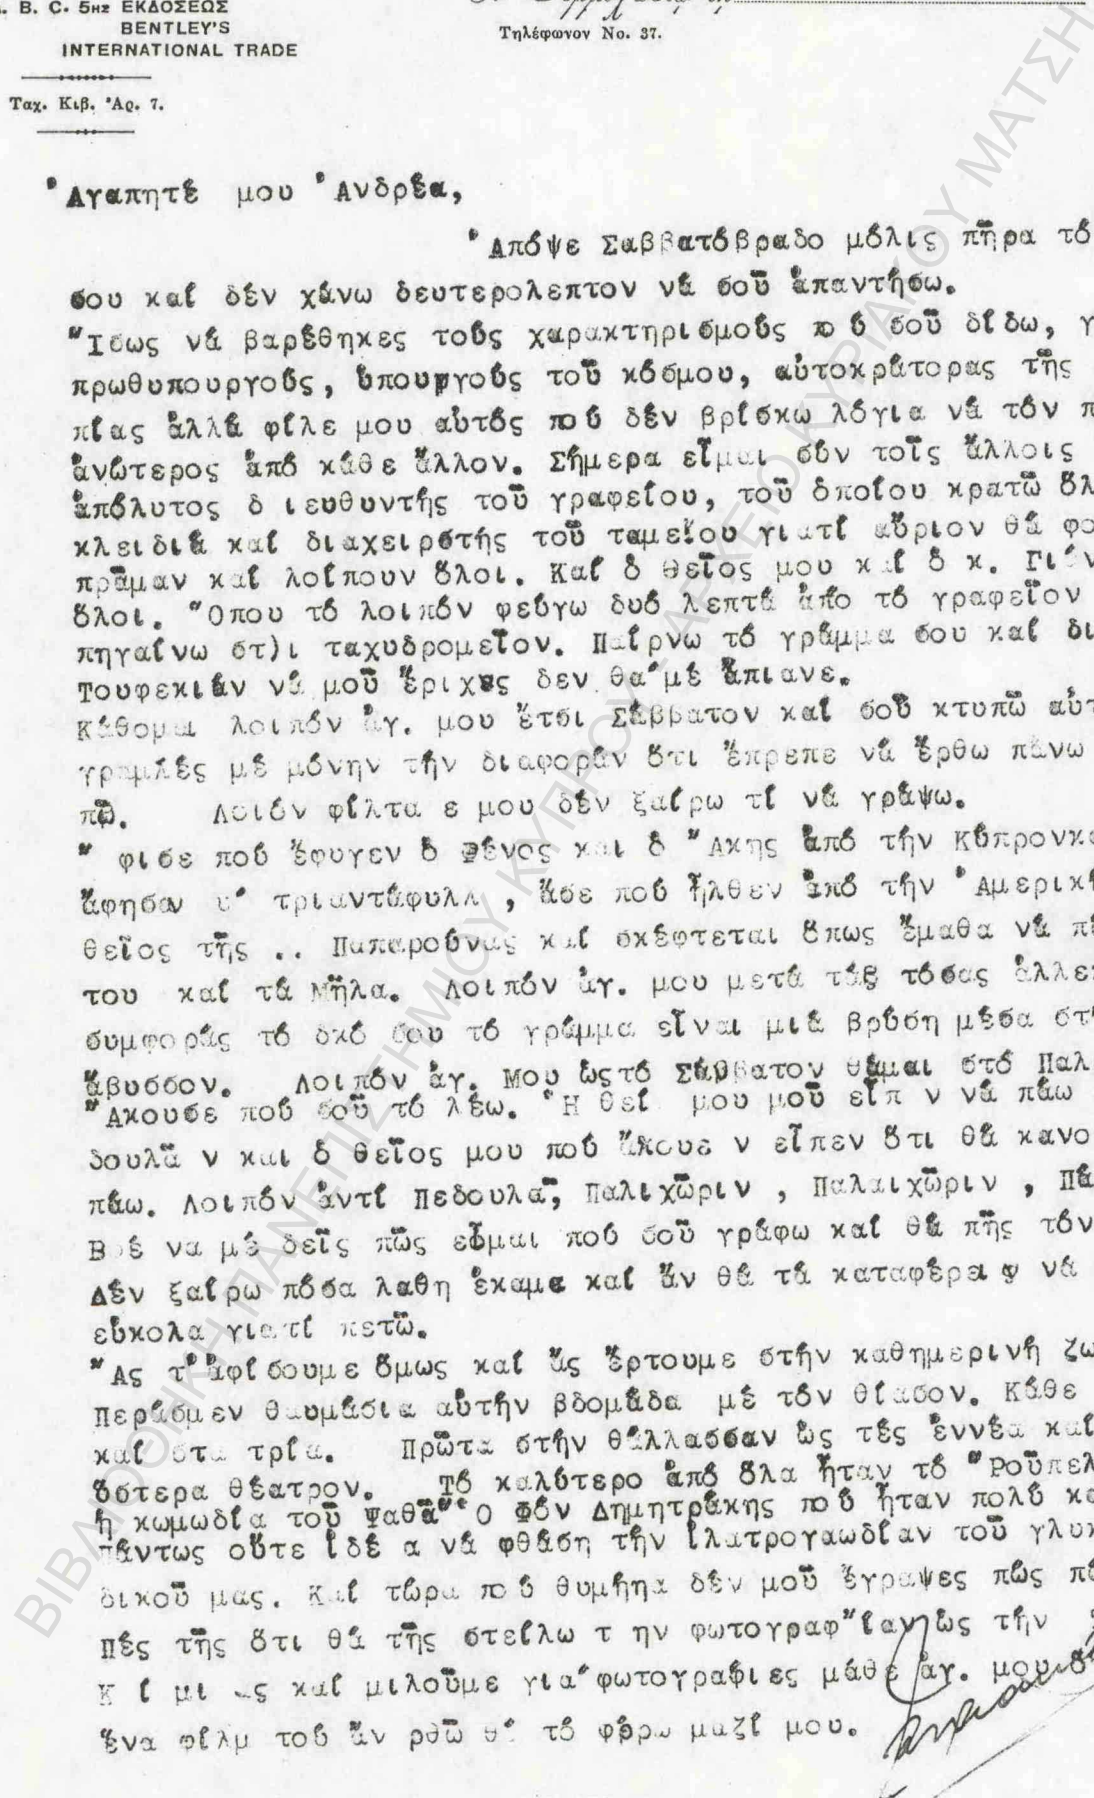 . B. C. 5ΗΣ ΕΚΔΟΣΕΩΣ
BENTLEY'S
INTERNATIONAL TRADE
Τηλέφωνον No. 37.
Ταχ. Κιβ. Ἀρ. 7.
Ἀγαπητέ μου Ἀνδρέα,
Ἀπόψε Σαββατόβραδο μόλις πῆρα τό
σου καί δέν χάνω δευτερολεπτον νά σοῦ ἀπαντήσω.
Ἴσως νά βαρέθηκες τούς χαρακτηρισμούς πού σοῦ δίδω, γ
πρωθυπουργούς, ὑπουργούς τοῦ κόσμου, αὐτοκράτορας τῆς
πίας ἀλλά φίλε μου αὐτός πού δέν βρίσκω λόγια νά τόν π
ἀνώτερος ἀπό κάθε ἄλλον. Σήμερα εἶμαι σύν τοῖς ἄλλοις
ἀπόλυτος δ ιευθυντής τοῦ γραφείου, τοῦ ὁποίου κρατῶ ὅλ
κλειδιά καί διαχειρστής τοῦ ταμείου γιατί αὔριον θά φο
πρᾶμαν καί λοίπουν ὅλοι. Καί ὁ θεῖος μου καί ὁ κ. Γιάν
ὅλοι. Ὅπου τό λοιπόν φεύγω δυό λεπτά ἀπο τό γραφεῖον
πηγαίνω στ)ι ταχυδρομεῖον. Παίρνω τό γράμμα σου καί δι
Τουφεκιάν νά μοῦ ἔριχνες δεν θα μέ ἔπιανε.
Κάθομαι λοιπόν ἀγ. μου ἔτσι Σάββατον καί σοῦ κτυπῶ αὐτ
γραμμές μέ μόνην τήν διαφοράν ὅτι ἔπρεπε νά ἔρθω πάνω
πῶ. Λοιόν φίλτα ε μου δέν ξαίρω τί νά γράψω.
" φισε πού ἔφυγεν ὁ Φένος και ὁ Ἄκης ἀπό τήν Κύπρονκα
ἄφησαν τ' τριαντάφυλλ , ἄσε πού ἦλθεν ἀπό τήν Ἀμερική
θεῖος τῆς .. Παπαρούνας καί σκέφτεται ὅπως ἔμαθα νά πά
του καί τά Μῆλα. Λοιπόν ἀγ. μου μετά τάς τόσας ἀλλεπ
συμφοράς τό δκό σου τό γράμμα εἶναι μιά βρύση μέσα στ
ἄβυσσον. Λοιπόν ἀγ. Μου ὡςτό Σάββατον θἆμαι στό Παλ
Ἄκουσε πού σοῦ τό λέω. Ἡ θεί μου μοῦ εἶπ ν νά πάω
δουλᾶ ν και ὁ θεῖος μου πού ἄκουε ν εἶπεν ὅτι θά κανο
πάω. Λοιπόν ἀντί Πεδουλᾶ, Παλιχῶριν , Παλαιχῶριν , Πα
Β έ να μέ δεῖς πῶς εἶμαι πού σοῦ γράφω καί θά πῆς τόν
Δέν ξαίρω πόσα λαθη ἔκαμα καί ἄν θά τά καταφέρει ς νά
εὔκολα γιατί πετῶ.
Ἄς τ'ἀφίσουμε ὅμως καί ἄς ἔρτουμε στήν καθημερινή ζω
Περάσμεν θαυμάσια αὐτήν βδομάδα μέ τόν θίασον. Κάθε
καί στα τρία. Πρῶτα στήν θάλλασσαν ὡς τές ἐννέα καί
ὕστερα θέατρον. Τό καλύτερο ἀπό ὅλα ἦταν τό "Ροῦπελ
ἡ κωμωδία τοῦ Ψαθᾶ" Ὁ Φόν Δημητράκης πού ἦταν πολύ κα
πάντως οὔτε ἰδέ α νά φθάση τήν ἱλατρογαωδίαν τοῦ γλυκ
δικοῦ μας. Καί τώρα πού θυμήηα δέν μοῦ ἔγραψες πῶς πέ
Πές τῆς ὅτι θά τῆς στείλω τ ην φωτογραφ"ίαν ὡς τήν
Κ ί μι ς καί μιλοῦμε για φωτογραφιες μάθε ἀγ. μου ὅ
ἕνα φίλμ τού ἄν ρθῶ θ τό φέρω μαζί μου.
ΒΙΒΛΙΟΘΗΚΗ ΠΑΝΕΠΙΣΤΗΜΙΟΥ ΚΥΠΡΟΥ - ΑΡΧΕΙΟ ΚΥΡΙΑΚΟΥ ΜΑΤΣΗ